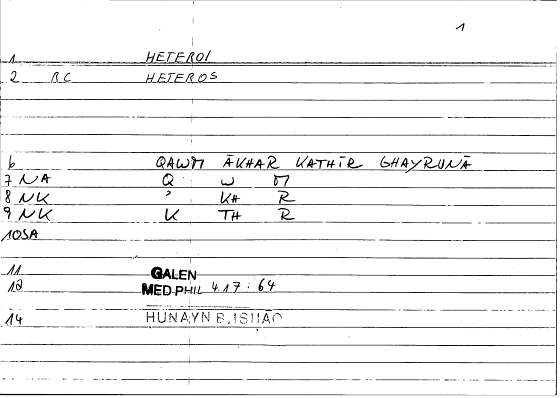 1
1 HETEROI
2 RC HETEROS
6 QAWM ĀKHAR KATHĪR GHAYRUNĀ
7 NA Q W M
8 NK ' KH R
9 NK K TH R
10SA
11 GALEN
12 MED PHIL 4.17 : 64
14 HUNAYN B. ISHAQ